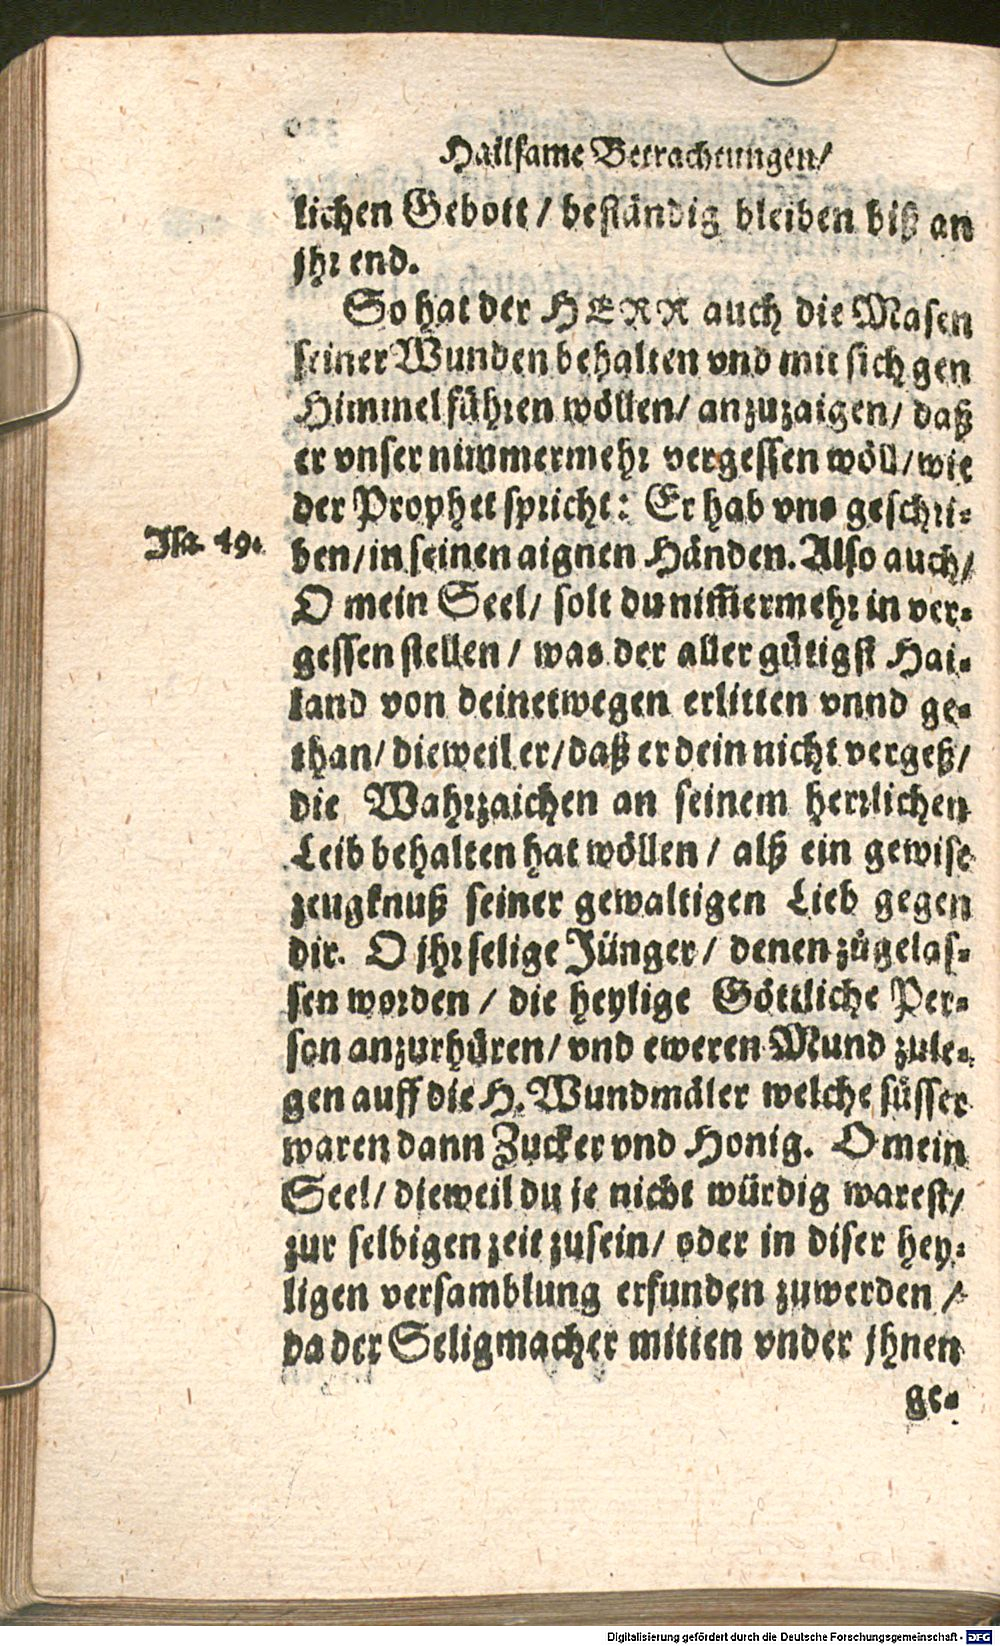 Hailsame Betrachtungen/
lichen Gebott / beständig bleiben biß an
jhr end.
So hat der HERR auch die Masen
seiner Wunden behalten vnd mit sich gen
Himmel führen wöllen/ anzuzaigen/ daß
er vnser nimmermehr vergessen wöll/ wie
der Prophet spricht: Er hab vns geschri-
Isa. 49.
ben/ in seinen aignen Händen. Also auch/
O mein Seel/ solt du nim̃ermehr in ver-
gessen stellen / was der aller gütigst Hai-
land von deinetwegen erlitten vnnd ge-
than/ dieweil er/ daß er dein nicht vergeß/
die Wahrzaichen an seinem herrlichen
Leib behalten hat wöllen / alß ein gewise
zeugknuß seiner gewaltigen Lieb gegen
dir. O jhr selige Jünger / denen zůgelas-
sen worden / die heylige Göttliche Per-
son anzurhüren/ vnd eweren Mund zule-
gen auff die H. Wundmäler welche süsser
waren dann Zucker vnd Honig. O mein
Seel/ dieweil du je nicht würdig warest/
zur selbigen zeit zusein/ oder in diser hey-
ligen versamblung erfunden zuwerden /
da der Seligmacher mitten vnder jhnen
ge-
Digitalisierung gefördert durch die Deutsche Forschungsgemeinschaft - DFG